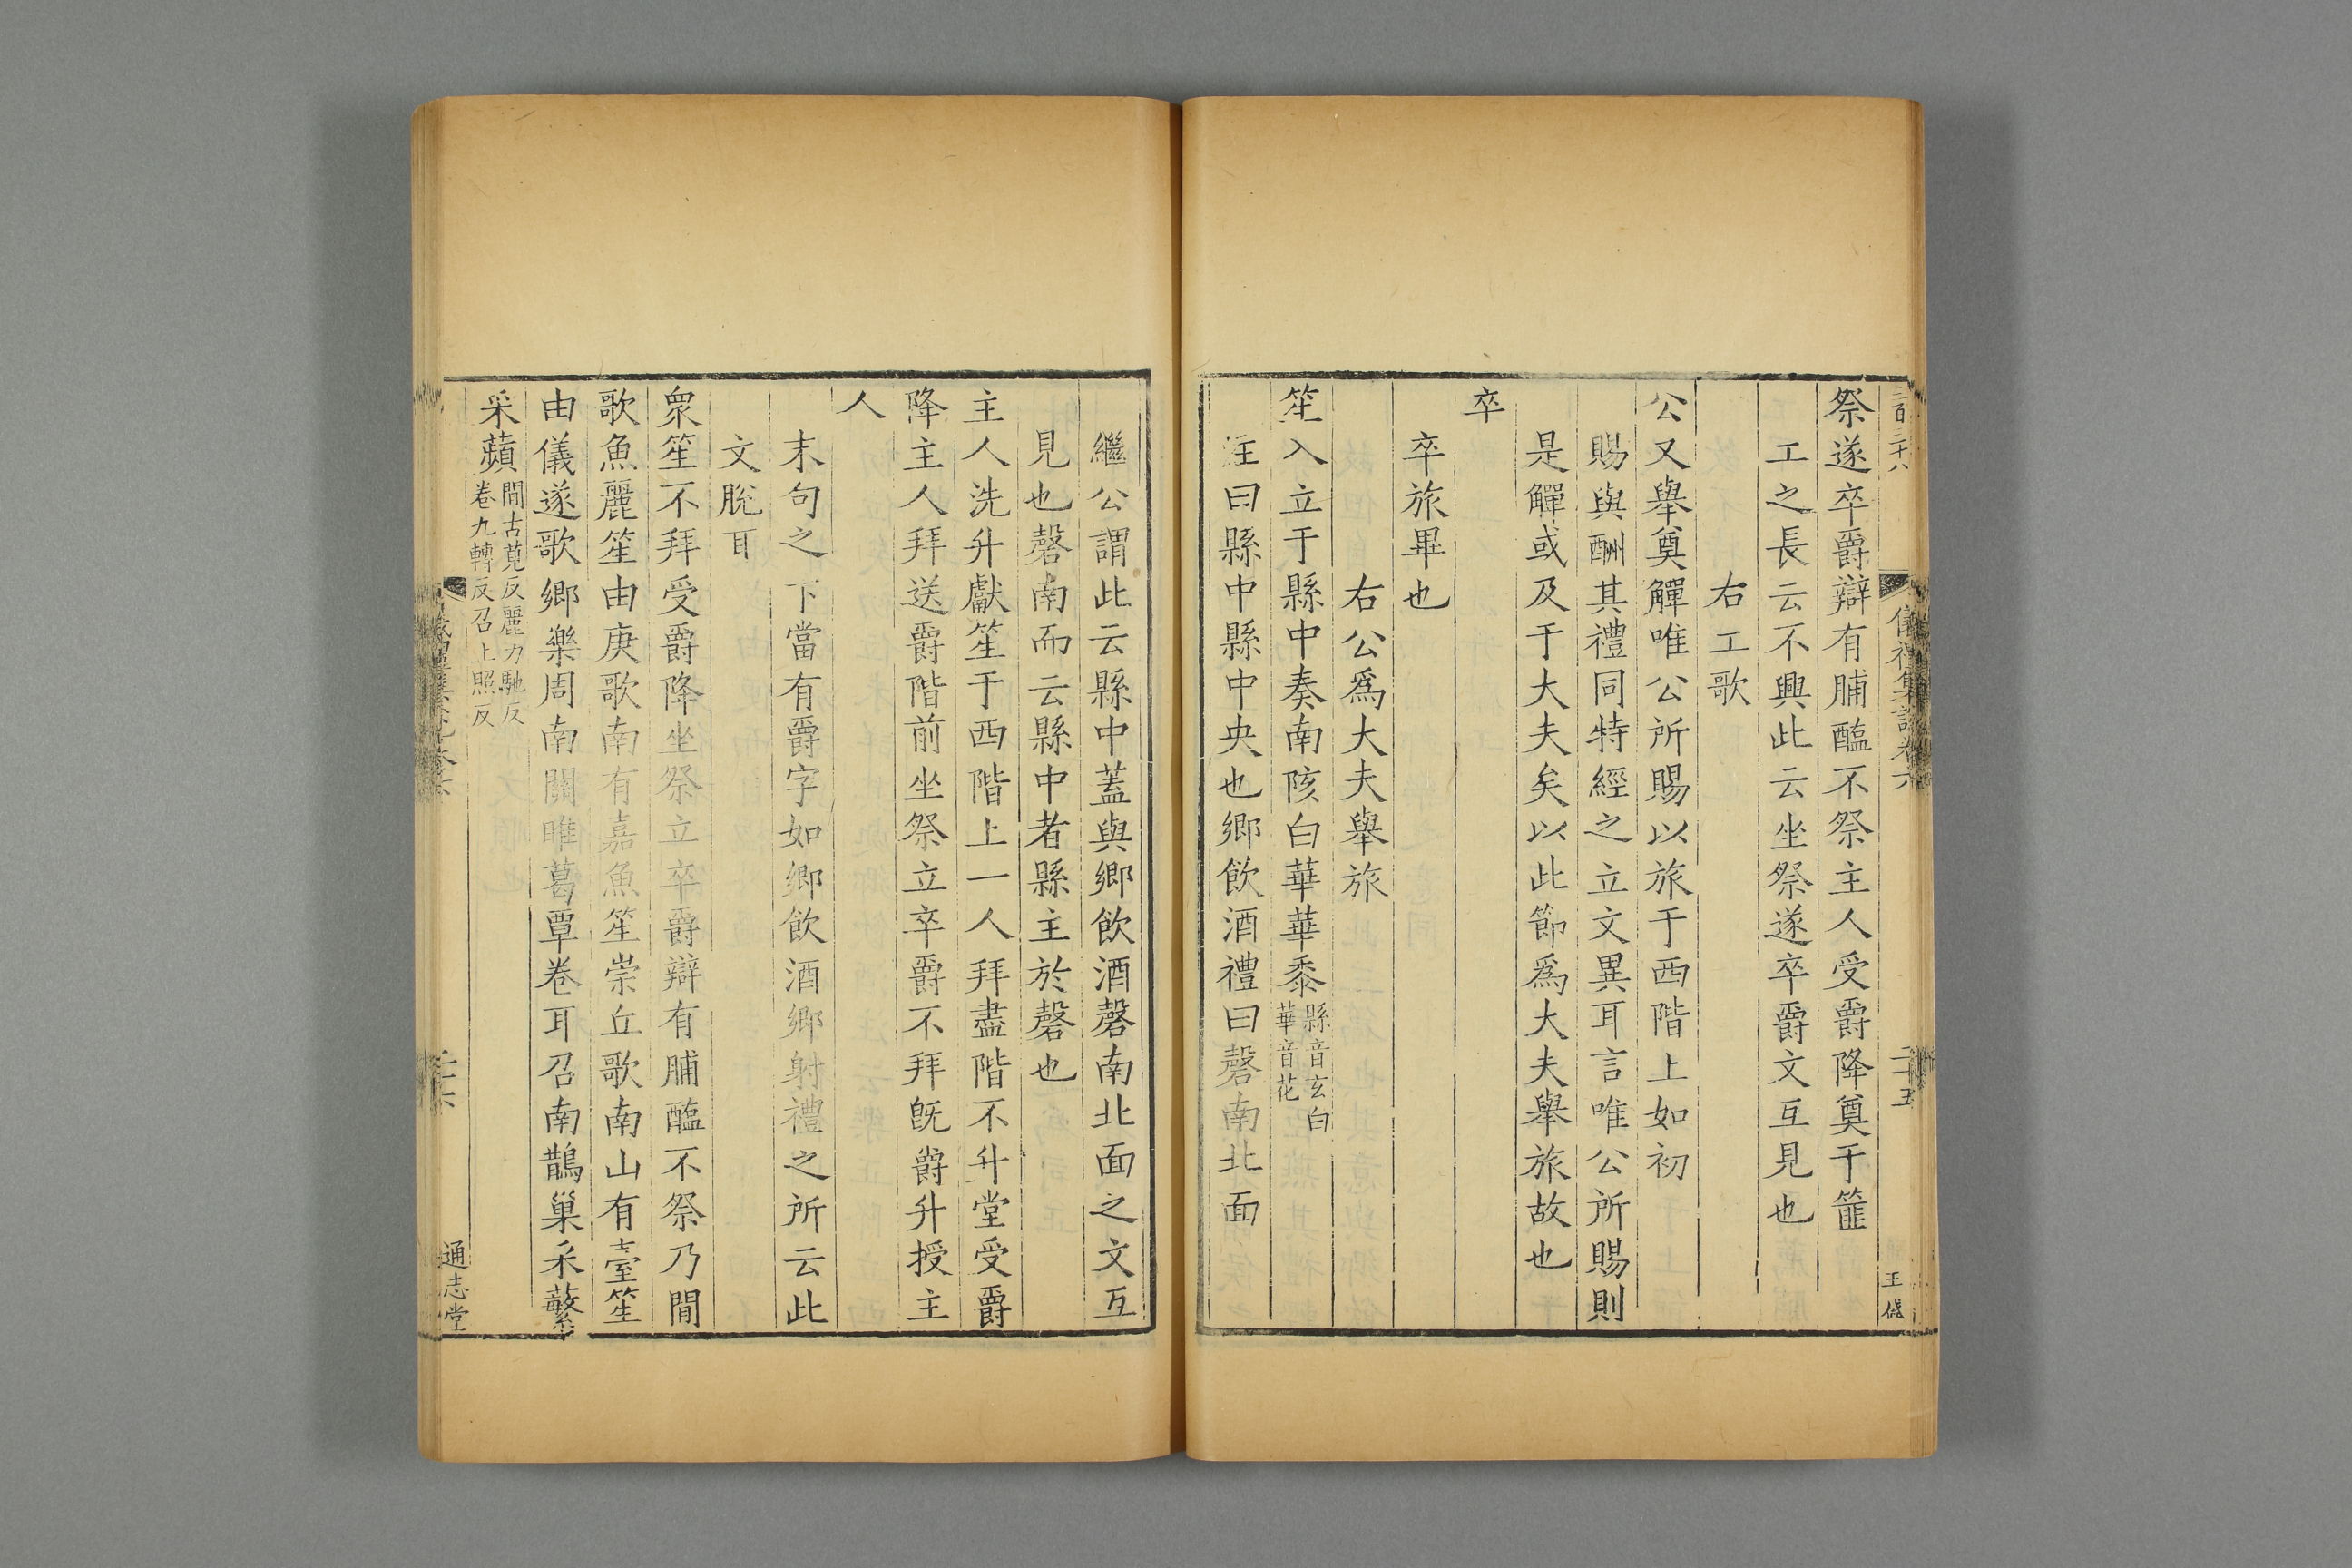 三百三十八
儀禮集說卷六
二十五
王儀
祭遂卒爵辯有脯醢不祭主人受爵降奠于篚
工之長云不興此云坐祭遂卒爵文互見也
右工歌
公又舉奠觶唯公所賜以旅于西階上如初
賜與酬其禮同特經之立文異耳言唯公所賜則
是觶或及于大夫矣以此節為大夫舉旅故也
卒
卒旅畢也
右公為大夫舉旅
笙入立于縣中奏南陔白華華黍縣音玄白
華音花
注曰縣中縣中央也鄉飲酒禮曰磬南北面
繼公謂此云縣中蓋與鄉飲酒磬南北面之文互
見也磬南而云縣中者縣主於磬也
主人洗升獻笙于西階上一人拜盡階不升堂受爵
降主人拜送爵階前坐祭立卒爵不拜旣爵升授主
人
末句之下當有爵字如鄉飲酒鄉射禮之所云此
文脫耳
衆笙不拜受爵降坐祭立卒爵辯有脯醢不祭乃閒
歌魚麗笙由庚歌南有嘉魚笙崇丘歌南山有臺笙
由儀遂歌鄉樂周南關雎葛覃卷耳召南鵲巢采蘩
采蘋閒古莧反麗力馳反
卷九轉反召上照反
二十六
通志堂